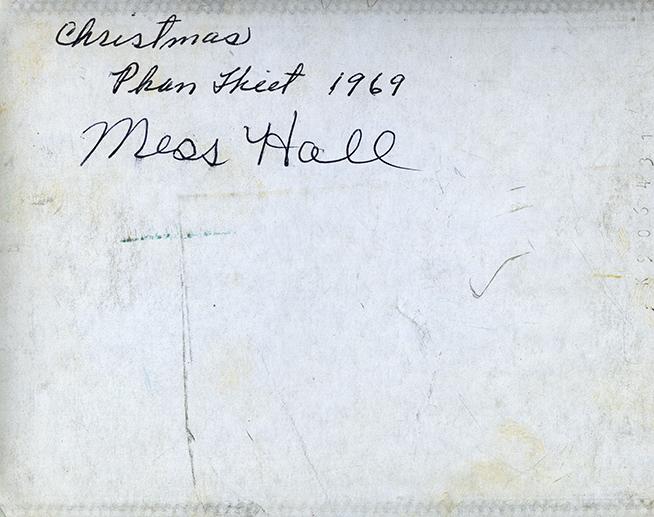 Christmas
Phan Thiet 1969
Mess Hall